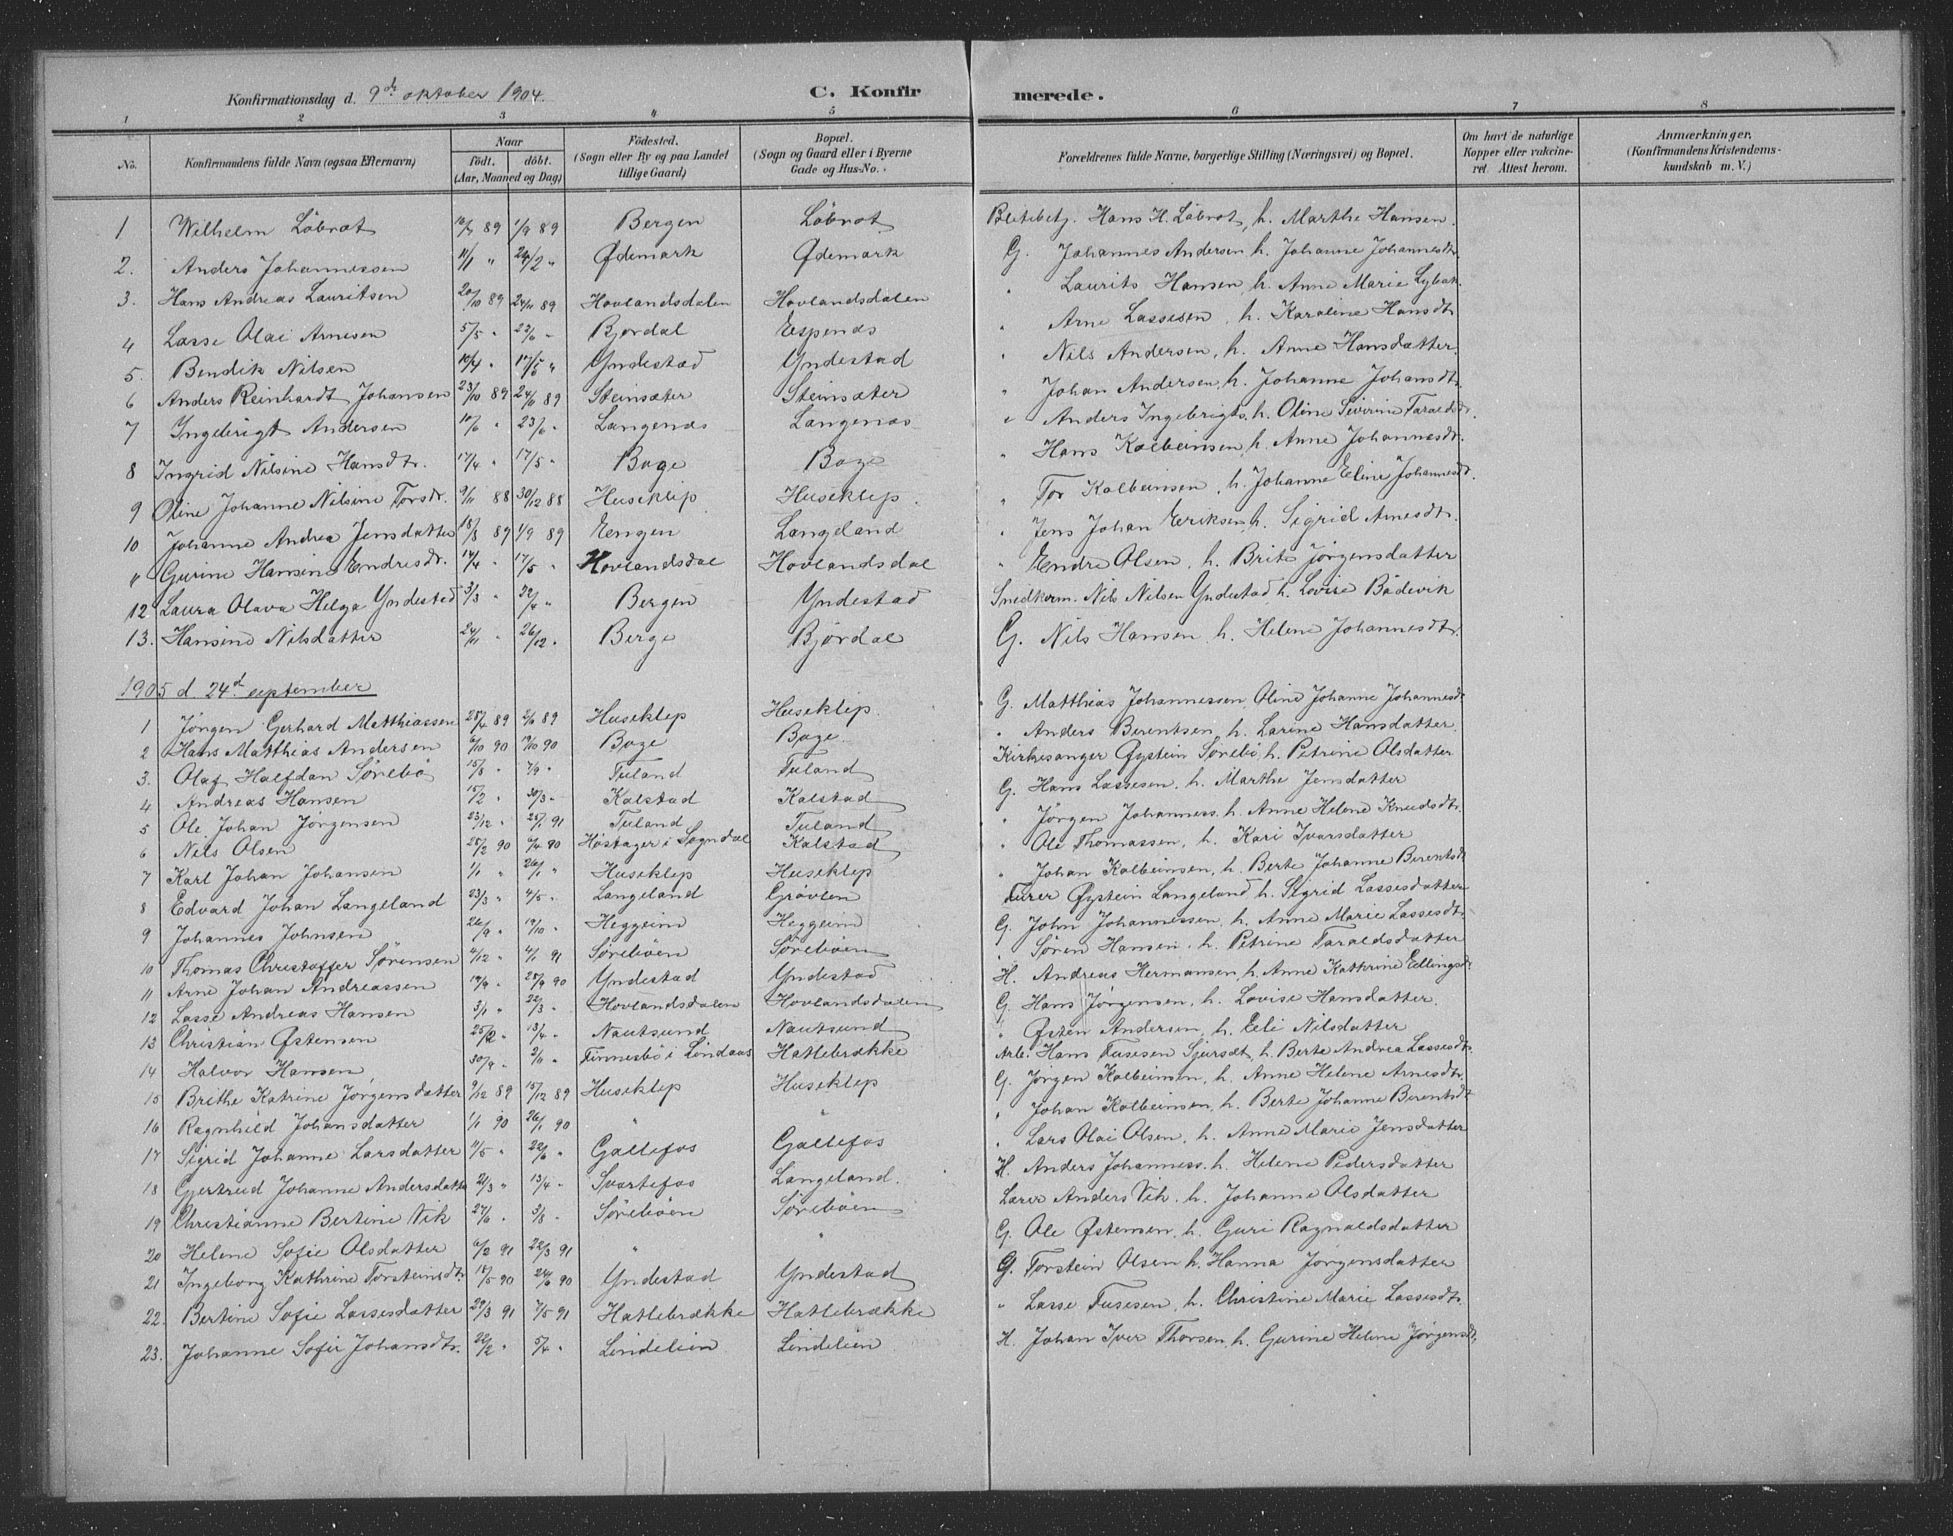 Konfirmationsdag d. 9de oktober 1904. C. Konfirmerede.
1 2 3 4 5 6 7 8
No. Konfirmandens fulde Navn (ogsaa Efternavn) Naar født. døbt. (Aar, Maaned og Dag) Födested. (Sogn eller By og paa Landet tillige Gaard) Bopæl. (Sogn og Gaard eller i Byerne Gade og Hus-No.) Forældrenes fulde Navne, borgerlige Stilling (Næringsvei) og Bopæl. Om havt de naturlige Kopper eller vakcineret. Attest herom. Anmærkninger. (Konfirmandens Kristendomskundskab m. V.)
1 Wilhelm Löbrot 89 1/9 89 Bergen Löbrot Hans H. Löbrot, h. Marthe Hansen.
2. Anders Johannessen 11/1 " 24/2 " Ødemark Ødemark G. Johannes Andersen h. Johanne Johannesdtr.
3. Hans Andreas Lauritsen 20/10 89 24/11 89 Hovlandsdalen Hovlandsdalen " Laurits Hansen h. Anne Marie
4 Lasse Olai Arnesen 5/5 " 23/6 " Bjordal Espenes " Arne Lassesen, h. Karoline Hansdtr
5. Bendik Nilsen 10/4 " 17/5 " Yndestad Yndestad " Nils Andersen, h. Anne Hansdatter.
6 Anders Reinhardt Johansen 23/10 89 24/11 89 Steinsæter Steinsæter " Johan Andersen, h. Johanne Johansdtr.
7 Ingebrigt Andersen 10/6 " 23/6 " Langenæs Langenæs " Anders Ingebrigts. h. Oline Siverine Taraldsdtr.
8 Ingrid Nilsine Hansdtr. 17/4 " 17/5 " Boge Boge " Hans Kolbeinsen, h. Anne Johannesdtr.
9 Oline Johanne Nilsine Torsdr. 9/11 88 30/12 88 Huseklep Huseklep. " Tor Kolbeinsen, h. Johanne Eline Johannesdt.
10 Johanne Andrea Jensdatter 18/8 89 1/9 89 Engen Langeland " Jens Johan Eriksen h. Sigrid Arnesdtr.
" Gurine Hansine Endresdr. 14/4 " 17/5 " Hovlandsdal Hovlandsdal " Endre Olsen, h. Brite Jørgensdatter
12 Laura Olava Helga Yndestad 3/3 " 22/4 " Bergen Yndestad Snedkerm. Nils Nilsen Yndestad h. Lovise Bödevik
13. Hansine Nilsdatter 24/11 " 26/12 " Berge Bjørdal G. Nils Hansen h. Helene Johannesdtr.
1905 d. 24d september
1 Jörgen Gerhard Matthiassen 28/4 89 2/6 89 Huseklep Huseklep. G. Matthias Johannessen Oline Johanne Johannesdt
2 Hans Matthias Andersen 6/10 90 19/10 90 Boge Boge. " Anders Berentsen, h. Larine Hansdatter
3. Olaf Halfdan Sörebö 15/8 " 7/9 " Tuland Tuland Kirkesanger Øystein Sörebö h. Petrine Olsdatter
4 Andreas Hansen 15/2 " 30/3 " Kalstad Kalstad G. Hans Lassesen h. Marthe Jensdatter
5 Ole Johan Jörgensen 23/12 " 25/1 91 Tuland Tuland " Jörgen Johanness. h. Anne Helene Knudsdtr.
6 Nils Olsen 25/2 90 6/4 90 Høstager i Sogndal Kalstad " Ole Thomassen, h. Kari Ivarsdatter
7 Karl Johan Johansen 1/1 " 26/1 " Huseklep Huseklep " Johan Kolbeinsen, h. Berte Johanne Berentsdt
8 Edvard Johan Langeland 23/3 " 4/5 " Langeland Grövlen Lærer Øystein Langeland h. Sigrid Lassesdatter
9 Johannes Johnsen 26/9 " 19/10 " Heggeim Heggeim G. John Johannessen, h. Anne Marie Lassesdtr
10 Thomas Christoffer Sörensen 4/12 " 4/1 91 Söreböen Söreböen " Sören Hansen, h. Petrine Taraldsdatter
11 Arne Johan Andreassen 19/9 " 28/9 90 Yndestad Yndestad H. Andreas Hermansen, h. Anne Kathrine Ellingsdr
12 Lasse Andreas Hansen 3/1 " 22/3 " Hovlandsdalen Hovlandsdalen G. Hans Jörgensen, h. Lovise Hansdatter.
13 Christian Østensen 25/2 " 13/4 " Nautsund Nautsund " Østen Andersen, h. Eli Nilsdatter
14 Halvor Hansen 30/4 " 2/6 " Finnesbö i Lindaas Hatlebrække Arb. Hans Tusesen h. Berte Andrea Lassesdtr
15 Brithe Katrine Jörgensdatter 9/12 89 15/12 89 Huseklep Huseklep G. Jörgen Kolbeinsen, h. Anne Helene Arnesdtr.
16 Ragnhild Johansdatter 1/1 90 26/1 90 " " " Johan Kolbeinsen, h. Berte Johanne Berentsdt
17 Sigrid Johanne Larsdatter 11/5 " 22/6 " Gallefos Gallefos " Lars Olai Olsen, h. Anne Marie Jensdatter
18 Gjertrud Johanne Andersdatter 21/3 " 13/4 " Svartefos Langeland. H. Anders Johanness. h. Helene Pedersdatter
19 Christianne Bertine Vik 27/6 " 3/8 " Söreböen Söreböen Lærer Anders Vik, h. Johanne Olsdatter
20 Helene Sofie Olsdatter 6/2 91 22/3 91 " " G. Ole Østensen, h. Guri Ragnaldsdatter
21 Ingeborg Kathrine Torsteinsdtr 18/5 90 24/6 90 Yndestad Yndestad G. Torstein Olsen h. Hanna Jörgensdatter
22. Bertine Sofie Lassesdatter 29/3 91 7/5 91 Hatlebrække Hatlebrække " Lasse Tusesen, h. Christine Marie Lassesdtr.
23. Johanne Sofie Johansdtr. 22/2 " 5/4 " Lindelien Lindelien H. Johan Iver Thorsen, h. Gurine Helene Jörgensdt.